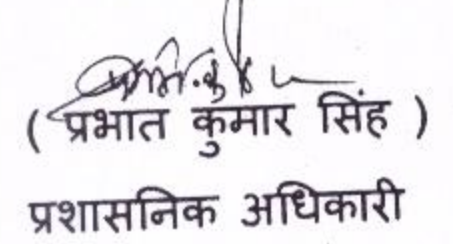 ( प्रभात कुमार सिंह )
प्रशासनिक अधिकारी